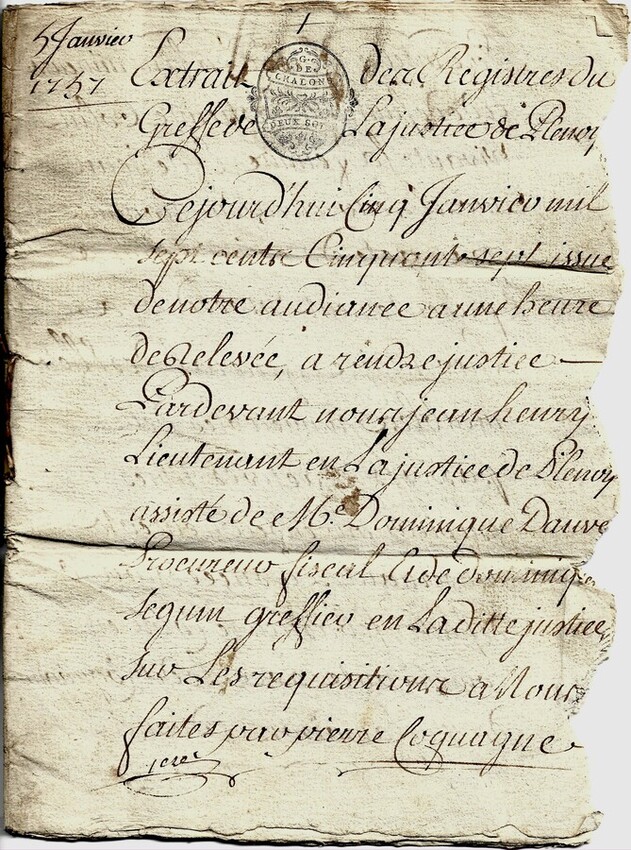 5 Janvier
1757
Extrait des Registres du
Greffe de La justice de Plenoy
G. DE
CHALON
DEUX SOLS
Cejourd'hui Cinq Janvier mil
sept cents Cinquante sept issue
de notre audiance a une heure
de Relevée, a rendre justice
Pardevant nous jean henry
Lieutenant en La justice de Plenoy
assisté de Me. Dominique Dauve
Procureur fiscal & de dominique
seguin greffier en Laditte justice
sur Les requisitions a Nous
faites par pierre Coquagne